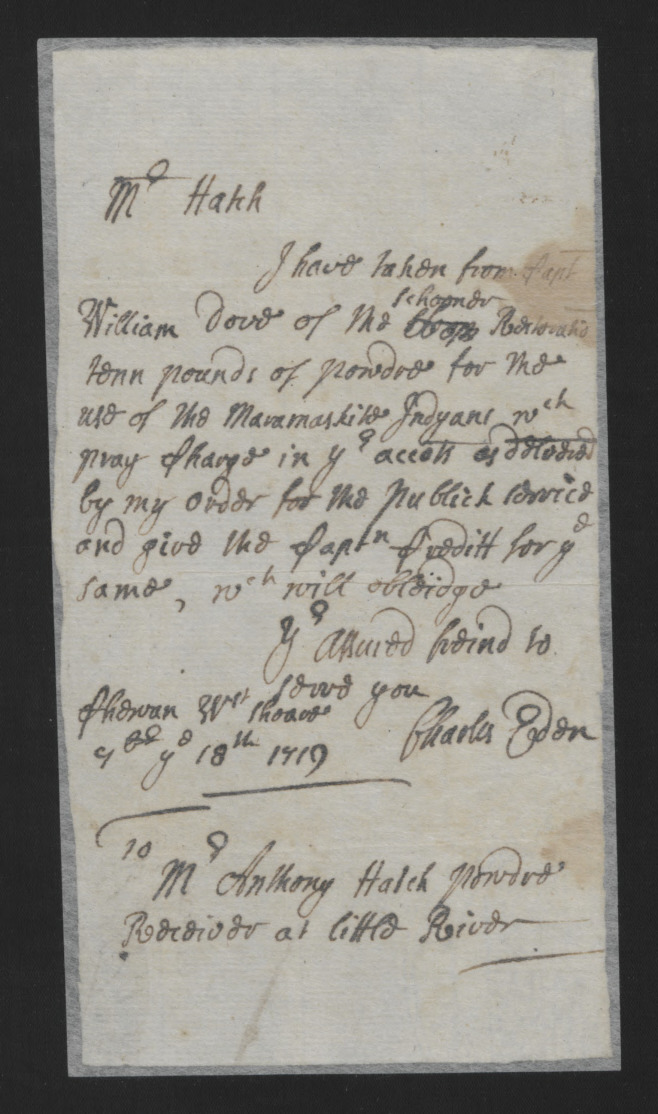 Mr Hatch
I have taken from Capt
schooner
William Dove of the Sloop Restoratio
tenn pounds of powdre for the
use of the Maramaskite Indyans wch
pray Charge in yr accots as delivered
by my order for the Publick service
and give the Captn Creditt for ye
same, wch will obleidge
Yr assured freind to
serve you
Chowan Wst shoare
7br ye 18th 1719
Charles Eden
To
Mr Anthony Hatch powdre
Receiver at little River